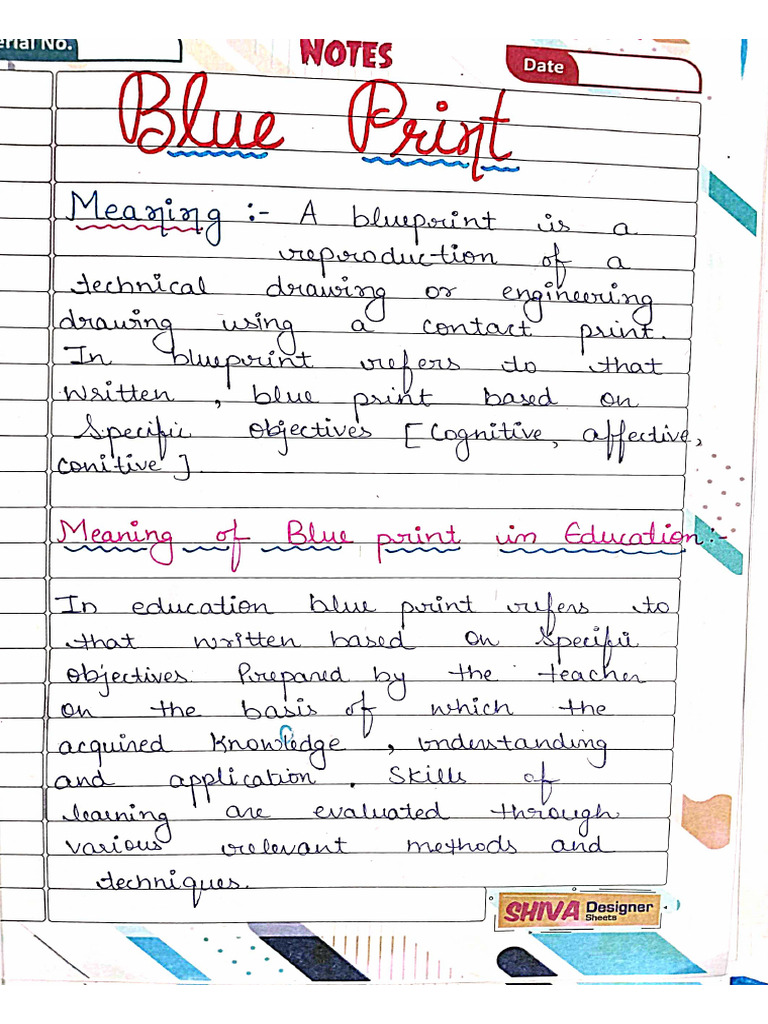 erial No.
NOTES
Date
Blue Print
Meaning :- A blueprint is a
reproduction of a
technical drawing or engineering
drawing using a contact print.
In blueprint refers to that
written, blue print based on
Specific objectives [Cognitive, affective,
conitive].
Meaning of Blue print in Education:-
In education blue print refers to
that written based on Specific
objectives. Prepared by the teacher
on the basis of which the
acquired Knowledge, understanding
and application. Skills of
learning are evaluated through
various relevant methods and
techniques.
SHIVA Designer
Sheets